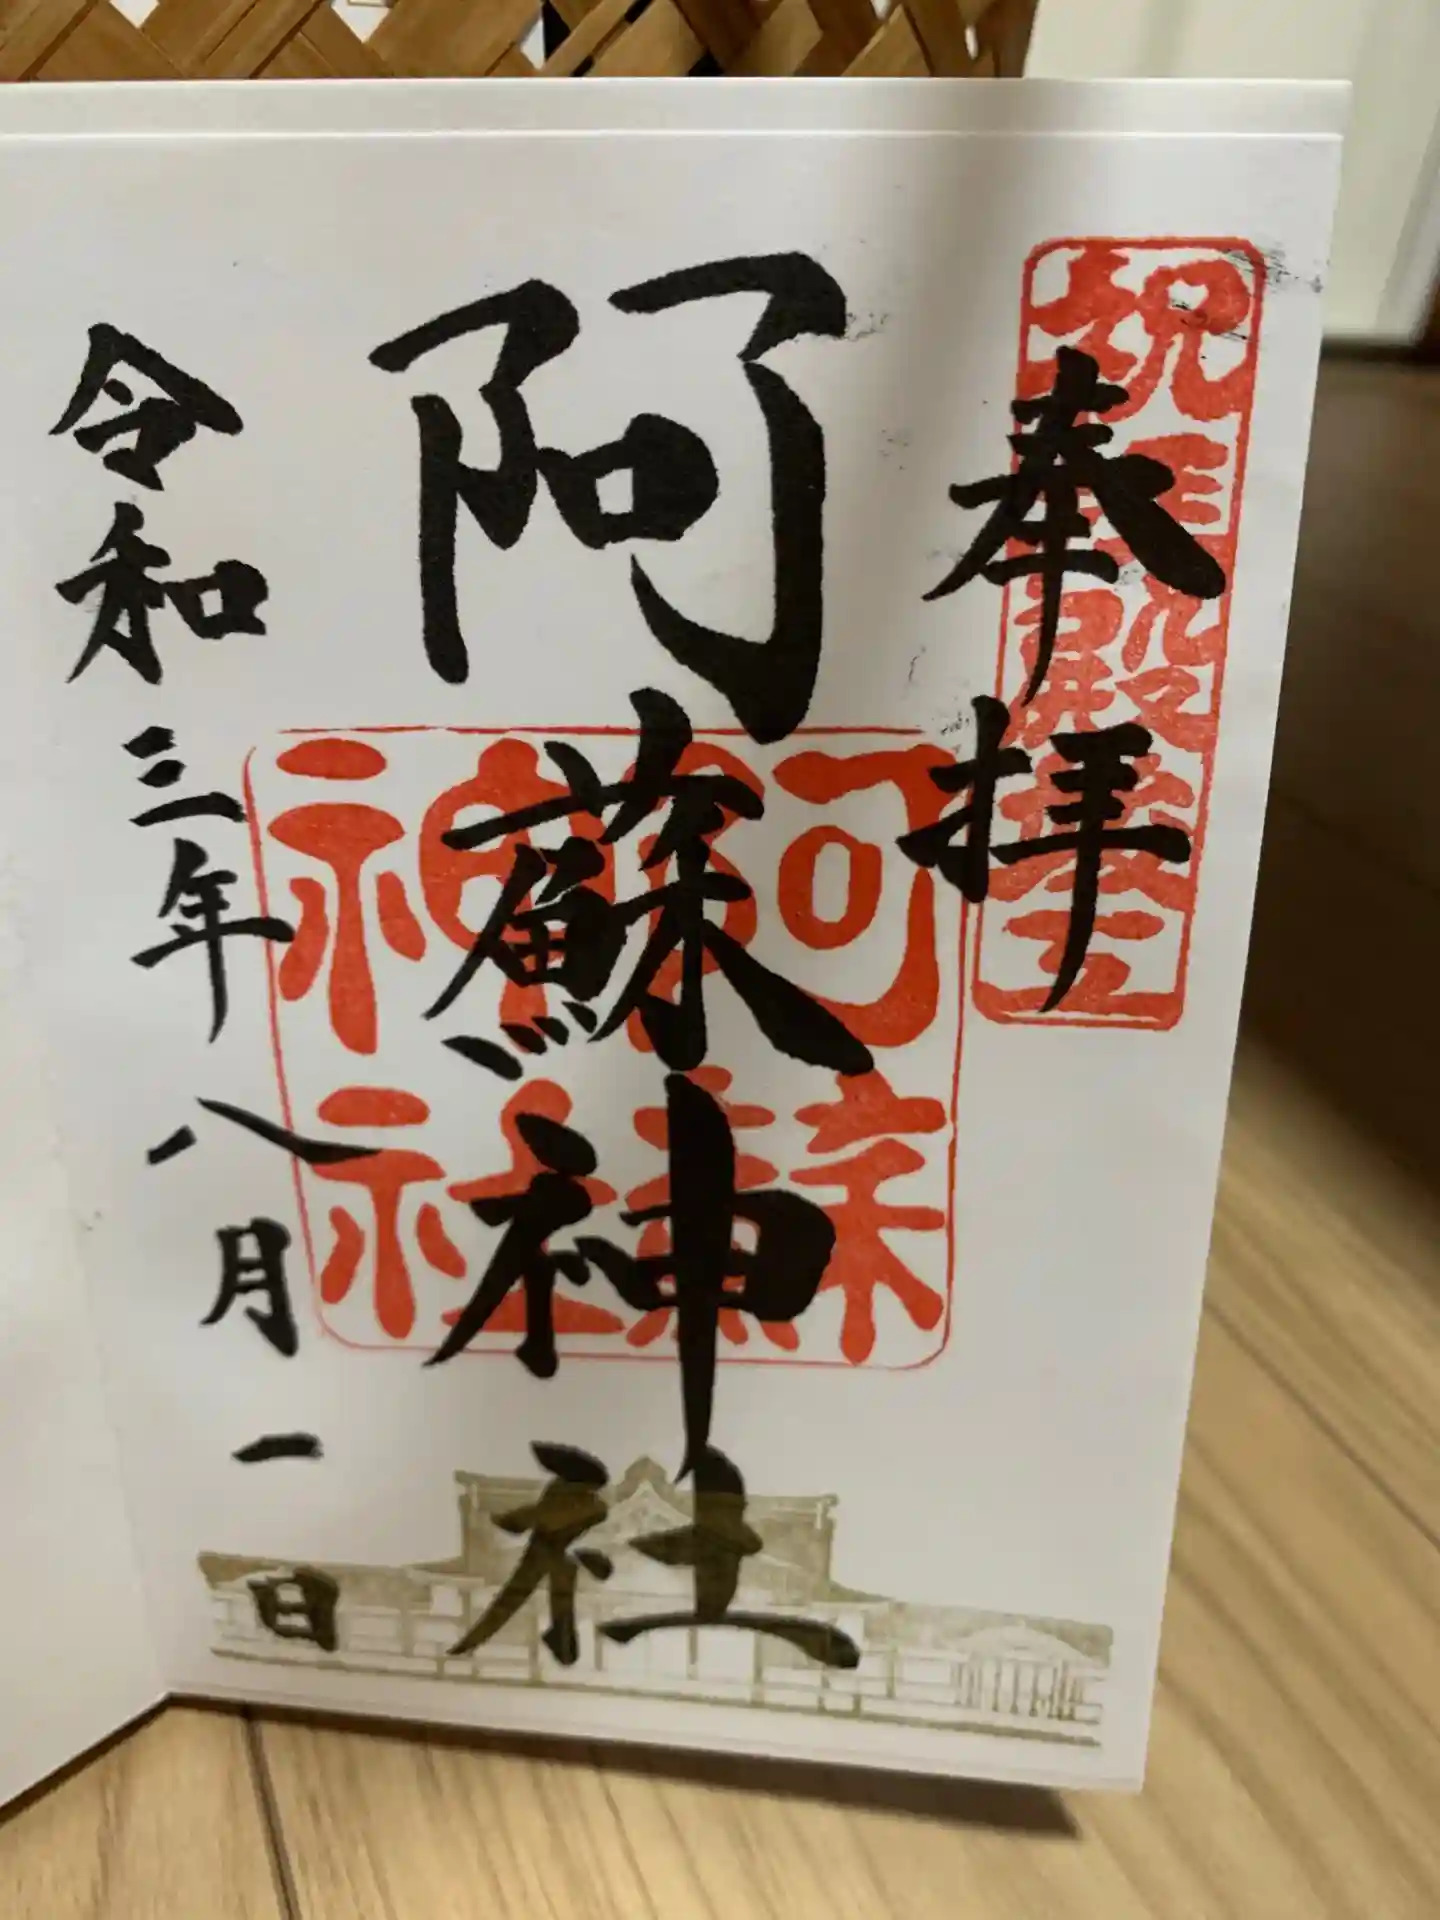 奉拝
祝拝殿竣工
阿蘇神社
阿蘇神社
令和三年八月一日